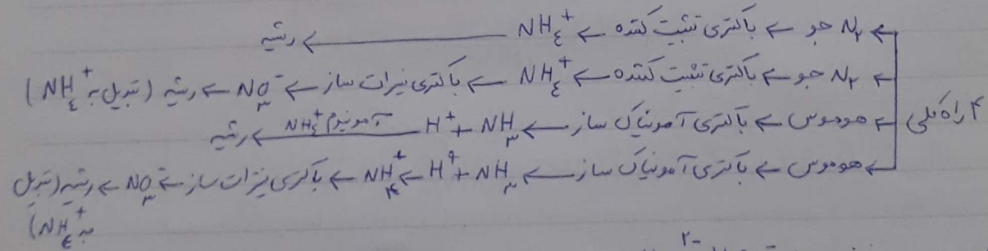 ۴ راه کلی
← N₂ جو ← باکتری تثبیت کننده ← NH₄⁺ ← ریشه
← N₂ جو ← باکتری تثبیت کننده ← NH₄⁺ ← باکتری نیترات ساز ← NO₃⁻ ← ریشه (تبدیل به NH₄⁺)
← هوموس ← باکتری آمونیاک ساز ← NH₃ + H⁺ ← آمونیوم NH₄⁺ ← ریشه
← هوموس ← باکتری آمونیاک ساز ← NH₃ + H⁺ ← NH₄⁺ ← باکتری نیترات ساز ← NO₃⁻ ← ریشه (تبدیل
به NH₄⁺)